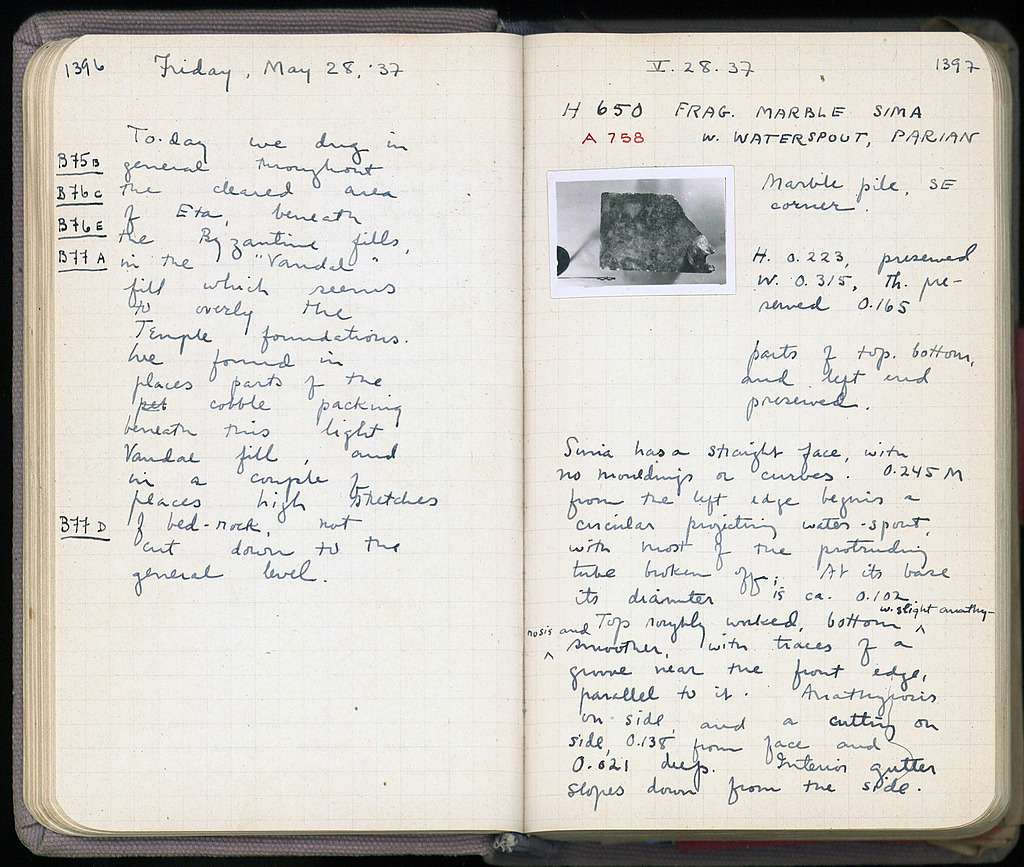 1396
Friday, May 28, '37
To-day we dug in
B75B
general throughout
B76C
the cleared area
B76E
of Eta, beneath
the Byzantine fills,
B77A
in the "Vandal"
fill which seems
to overly the
Temple foundations.
We found in
places parts of the
pet cobble packing
beneath this light
Vandal fill, and
in a couple of
places high stretches
B77D
of bed-rock, not
cut down to the
general level.
V. 28. 37
1397
H 650 FRAG. MARBLE SIMA
A 758 W. WATERSPOUT, PARIAN
Marble pile, SE
corner.
H. 0.223, preserved
W. 0.315, Th. pre-
served 0.165
parts of top, bottom,
and left end
preserved.
Sima has a straight face, with
no mouldings or curves. 0.245 M
from the left edge begins a
circular projecting water-spout,
with most of the protruding
tube broken off; At its base
its diameter is ca. 0.102
w. slight anathy-
Top roughly worked, bottom ^
nosis and
^ smoother, with traces of a
groove near the front edge,
parallel to it. Anathyrosis
on side, and a cutting on
side, 0.138 from face and
0.021 deep. Interior gutter
slopes down from the side.